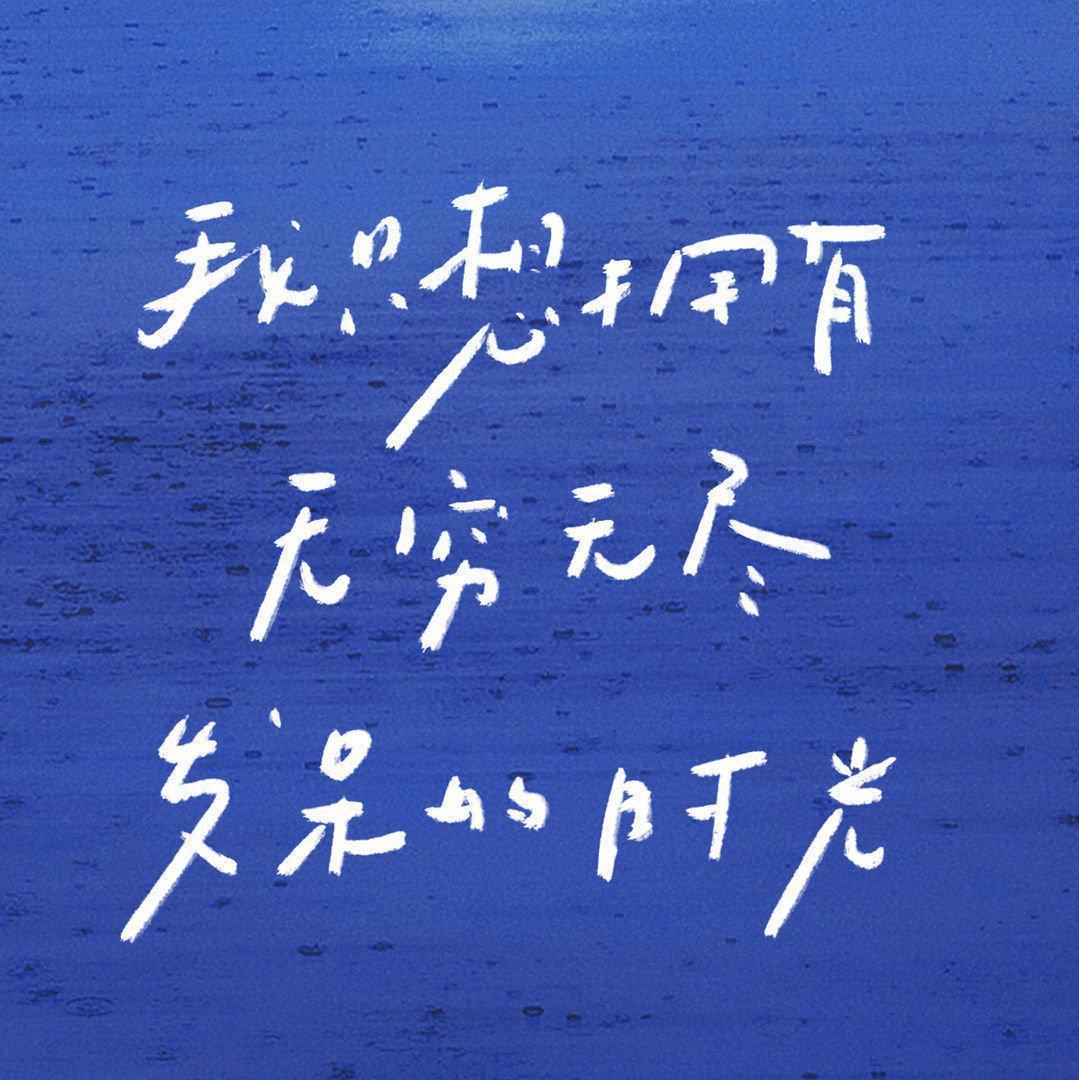 我只想拥有
无穷无尽
发呆的时光